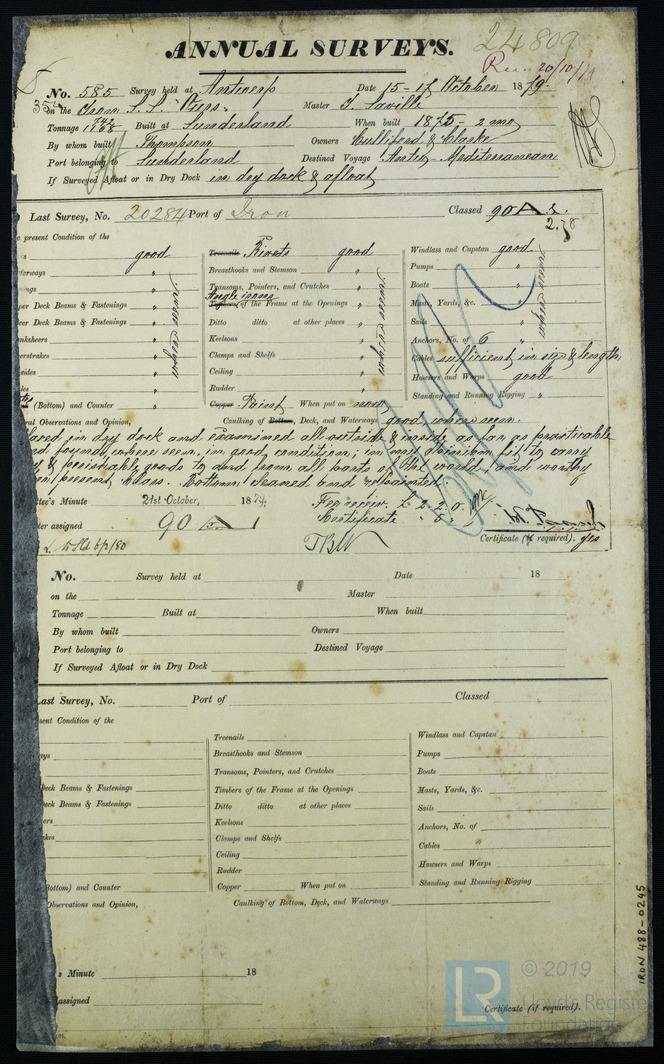 24809
ANNUAL SURVEYS.
Rec 20/10/79
No. 585 Survey held at Antwerp Date 15-17 October 1879.
on the Iron S.S. Master J. Saville
Tonnage 742 Built at Sunderland When built 1875 - 2 mo
By whom built Thompson Owners Culliford & Clarke
Port belonging to Sunderland Destined Voyage Antwp - Mediterranean
If Surveyed Afloat or in Dry Dock in dry dock & afloat
Last Survey, No. 20284 Port of Iron Classed 90 A
2.78
present Condition of the
good Treenails Rivets good Windlass and Capstan good
terways " Breasthooks and Stemson " Pumps "
ngs " Transoms, Pointers, and Crutches " Boats "
Angle irons
per Deck Beams & Fastenings " Timbers of the Frame at the Openings " Masts, Yards, &c. "
er Deck Beams & Fastenings " Ditto ditto at other places " Sails "
nksheers " Keelsons " Anchors, No. of 6 "
erstrakes " Clamps and Shelfs " Cables sufficient in size & length,
sides " Ceiling " Hawsers and Warps good
les " Rudder " Standing and Running Rigging "
(Bottom) and Counter " Copper Paint When put on now
where seen
where seen
where seen
al Observations and Opinion, Caulking of Bottom, Deck, and Waterways good where seen.
laced in dry dock and examined all outside & inside as far as practicable
found, where seen, in good condition; in my opinion fit to carry
& perishable goods to and from all parts of the world, and worthy
present class. Bottom cleaned and repainted.
tee's Minute 21st October, 1879. Fee receiv. £ 2.2.0.
ter assigned 90 A 1 Certificate " 5. "
Certificate (if required). yes
6/2/80
No. Survey held at Date 18
on the Master
Tonnage Built at When built
By whom built Owners
Port belonging to Destined Voyage
If Surveyed Afloat or in Dry Dock
Last Survey, No. Port of Classed
sent Condition of the
Treenails Windlass and Capstan
ys Breasthooks and Stemson Pumps
Transoms, Pointers, and Crutches Boats
Deck Beams & Fastenings Timbers of the Frame at the Openings Masts, Yards, &c.
eck Beams & Fastenings Ditto ditto at other places Sails
ers Keelsons Anchors, No. of
kes Clamps and Shelfs Cables
Ceiling Hawsers and Warps
Rudder Standing and Running Rigging
Bottom) and Counter Copper When put on
Observations and Opinion, Caulking of Bottom, Deck, and Waterways
's Minute 18
assigned
Certificate (if required).
IRON 488-0245
LR © 2019
Lloyd's Register
Foundation